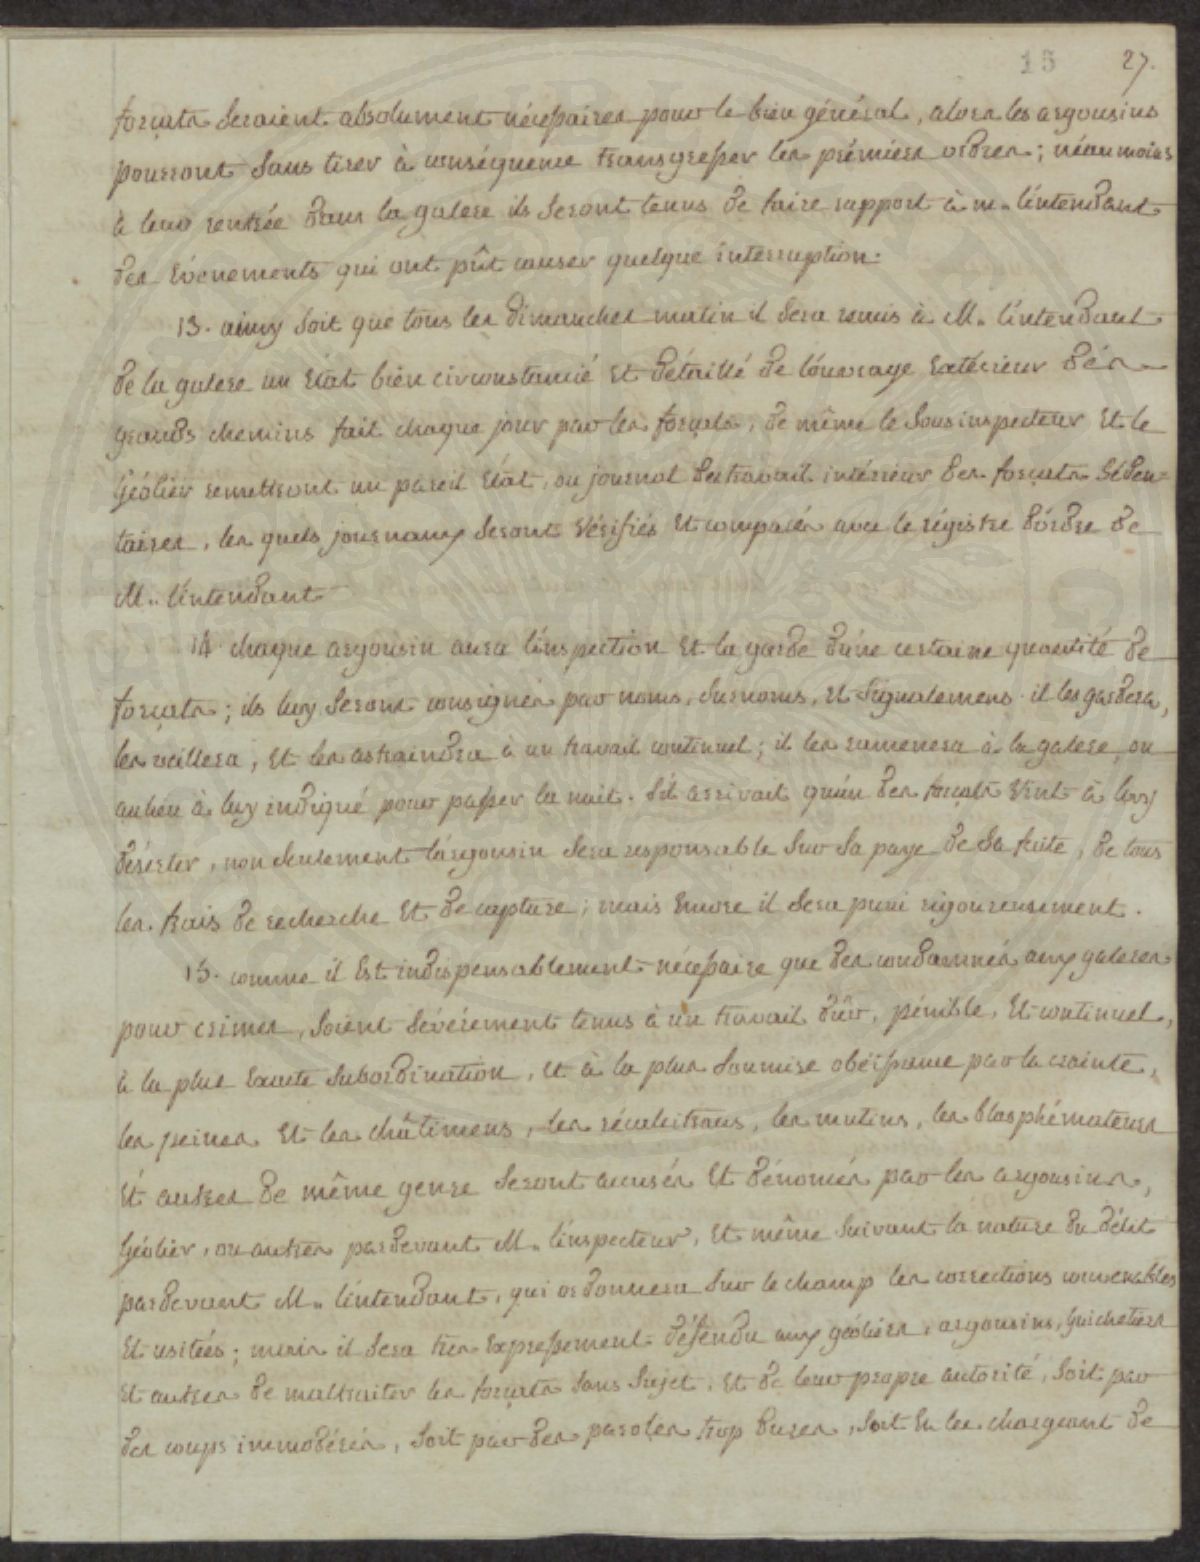 15 27.
forçats seraient absolument nécessaires pour le bien général, alors les argousins
pourront sans tirer à conséquence transgresser les prémiers ordres; néanmoins
à leur rentrée dans la galere ils seront tenus de faire rapport à m.. l'intendant
des événements qui ont pût causer quelque interruption.
13. ainsy soit que tous les dimanches matin il sera remis à M.. l'intendant
de la galere un état bien circonstancié et détaillé de l'ouvrage extérieur dés
grands chemins fait chaque jour par les forçats, de même le sous inspecteur et le
Géolier remettront un pareil état, ou journal du travail intérieur des forçats séden=
taires, les quels journaux seront vérifiés et comparés avec le régistre d'ordre de
M.. l'intendant
14. chaque argousin aura l'inspection et la garde d'une certaine quantité de
forçats; ils luy seront consignés par noms, surnoms, et signalemens. il les gardera,
les veillera, et les astraindra à un travail continuel; il les ramenera à la galere, ou
au lieu à luy indiqué pour passer la nuit. s'il arrivait qu'un des forçats vint à luy
déserter, non seulement l'argousin sera responsable sur sa paye de sa fuite, de tous
les frais de recherche et de capture; mais encore il sera puni rigoureusement.
15. comme il est indispensablement nécessaire que des condamnés aux galeres
pour crimes, soient sévérement tenus à un travail dûr, pénible, et continuel,
à la plus exacte subordination, et à la plus soumise obéissance par la crainte,
les peines et les châtimens, les récalcitrans, les mutins, les blasphémateurs
et autres de même genre seront accusés et dénoncés par les argousins,
Géolier, ou autres pardevant M.. l'inspecteur, et même suivant la nature du délit
pardevant M.. l'intendant, qui ordonnera sur le champ les corrections convenables
et usitées; mais il sera tres expressement défendu aux géoliers, argousins, guichetiers
et autres de maltraiter les forçats sans sujet, et de leur propre autorité, soit par
des coups immodérés, soit par des paroles trop dures, soit en les chargeant de